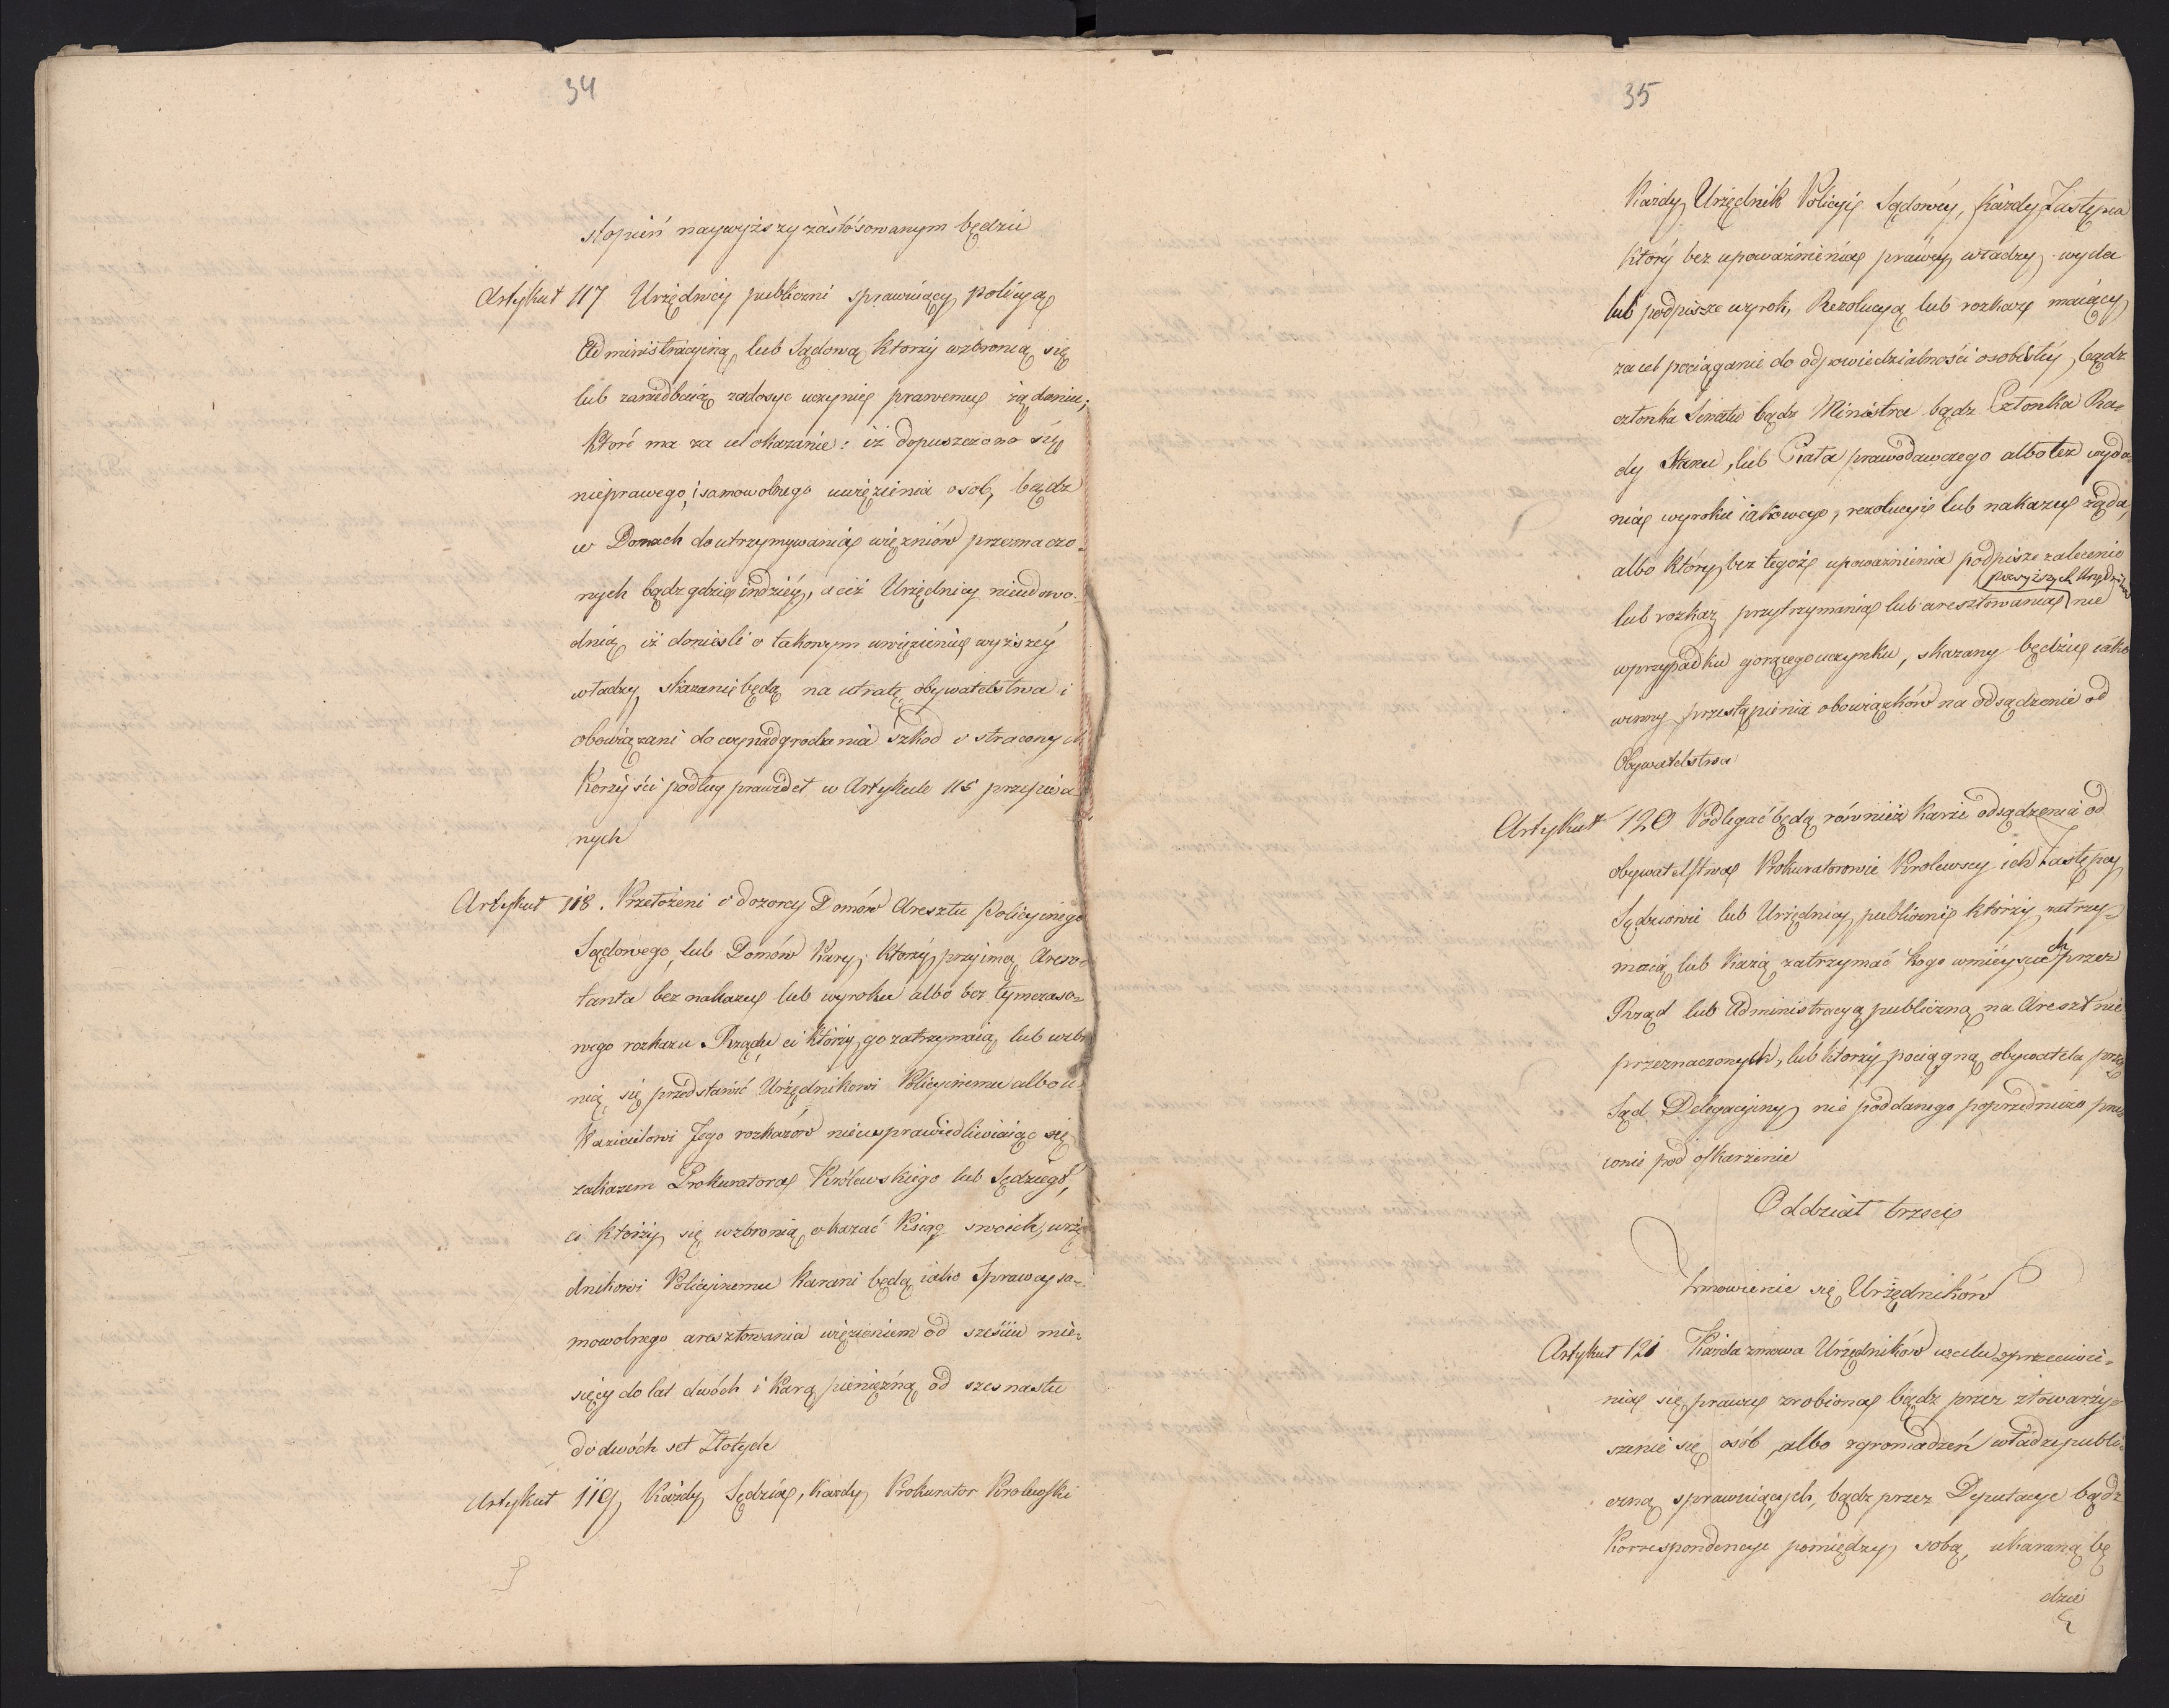 34
stopień naywyższy zastósowanym będzie
Artykuł 117 Urzędnicy publiczni sprawuiący policyą
Administracyiną, lub Sądową którzy wzbronią się
lub zaniedbaią zadosyc uczynić prawemu żądaniu;
które ma za cel okazanie: iż dopuszczono się
nieprawego, i samowolnego uwięzienia osob, bądz
w Domach do utrzymywania więzniów przeznaczo-
nych bądz gdzie indziéy, a ciż Urzędnicy nieudowo-
dnią, iż doniesli o takowym uwięzieniu wyższéy
władzy, skazani będą na utratę obywatelstwa i
obowiązani do wynadgrodzenia szkod i straconych
korzyści podług prawideł w Artykule 115 przepisa
nych
Artykuł 118. Przełożeni i dozorcy Domów Aresztu Policyinego
Sądowego, lub Domów kary, którzy przyimą Areso-
tanta bez nakazu lub wyroku albo bez tymczaso-
wego rozkazu Rządu ci którzy go zatrzymaią lub wzbro
nią się przedstawić Urzędnikowi Policyinemu albo u-
kazicielowi Jego rozkazów nieusprawiedliwiaiąc się
zakazem Prokuratora Królewskiego lub Sędziego,
ci którzy się wzbronią okazać Ksiąg swoich, urzę
dnikowi Policyinemu karani będą iako Sprawcy sa-
mowolnego aresztowania więzieniem od sześciu mie-
sięcy do lat dwóch i karą pieniężną od szesnastu
do dwóch set Złotych
Artykuł 119 Każdy Sędzia, każdy Prokurator Krolewski
35
Każdy Urzędnik Policyi Sądowéy, każdy Zastępca
który bez upoważnienia prawéy władzy wyda
lub podpisze wyrok, Rezolucyą lub rozkaz maiący
za cel pociąganie do odpowiedzialności osobistéy bądz
członka Senatu bądz Ministra bądz Członka Ra-
dy Stanu, lub Ciała prawodawczego albo też wyda-
nia wyroku iakowego, rezolucyi lub nakazu żąda,
albo który bez tegoż upoważnienia podpisze zalecenie
powyższych Urzędników
lub rozkaz przytrzymania lub aresztowania nie
w przypadku gorącego uczynku, skazany będzie iako
winny przestąpienia obowiązków na odsądzenie od
Obywatelstwa
Artykuł 120 Podlegać będą również karze odsądzenia od
obywatelstwa Prokuratorowie Krolewscy ich Zastępcy
Sędziowie lub Urzędnicy publiczni którzy zatrzy-
maią lub każą zatrzymać kogo w mieyscach przez
Rząd lub Administracyą publiczną na Areszt nie
przeznaczonych, lub którzy pociągną obywatela przed
Sąd Delegacyiny nie poddanego poprzedniczo praw
ionie pod oskarzenie
Oddział trzeci
Zmowienie się Urzędników
Artykuł 121 Każda zmowa Urzędników w celu sprzeciwie-
nia się prawu zrobiona bądz przez ztowarzy-
szenie się osób, albo zgromadzeń władzę publi-
czną sprawuiących, bądz przez Deputacye bądz
Korrespondencye pomiędzy sobą, ukaraną bę
dzie